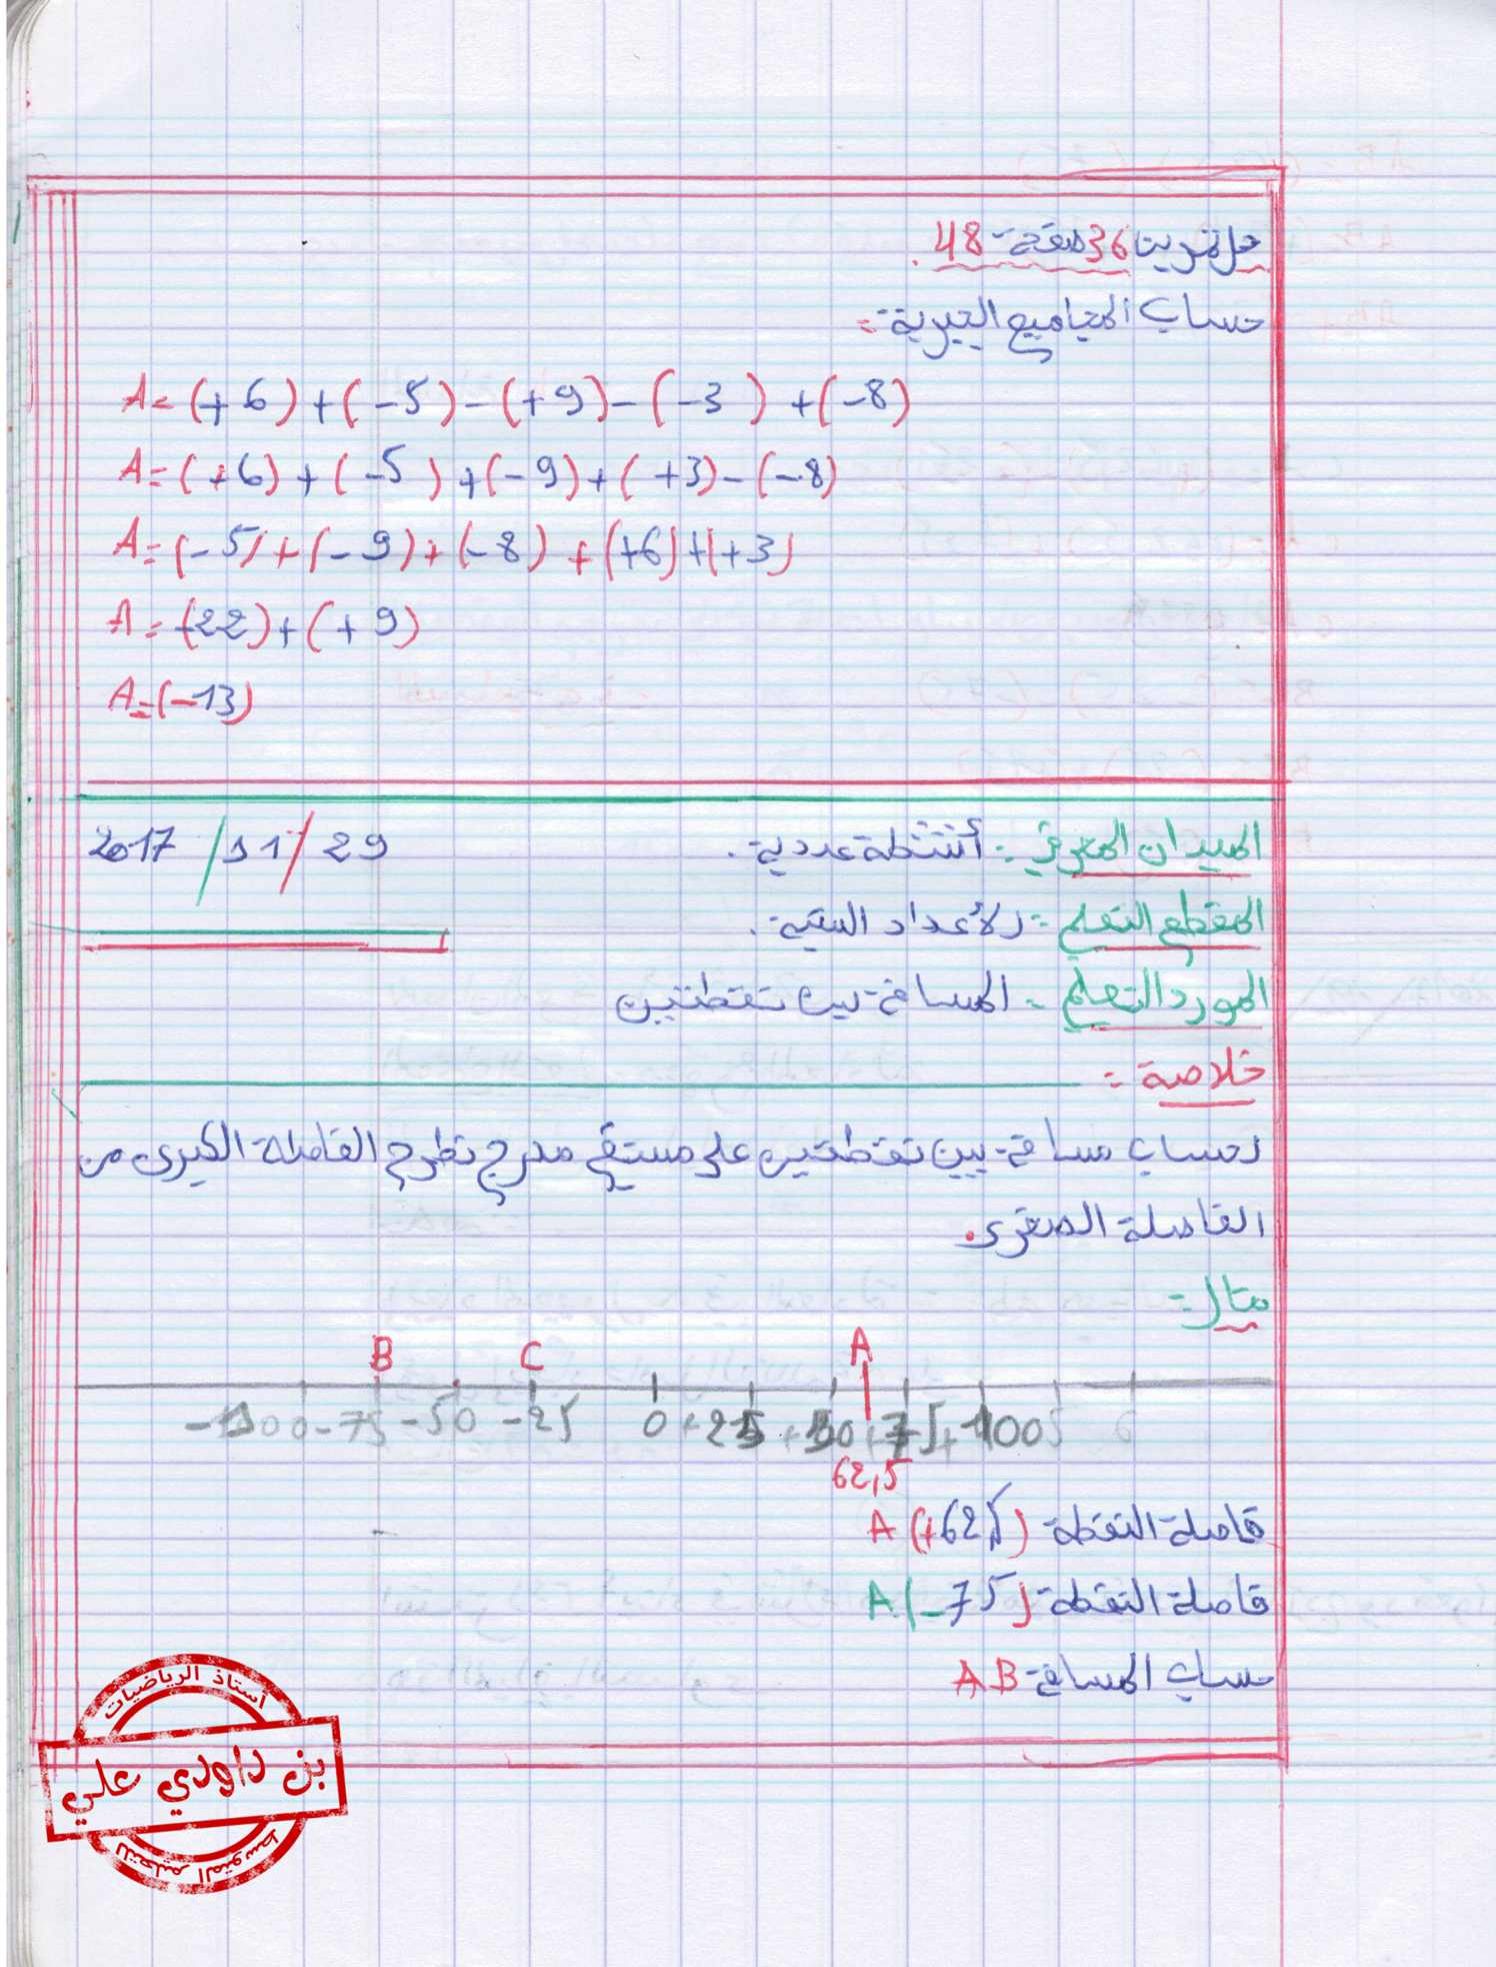 حل تمرين 36 صفحة 48.
حساب المجاميع الجبرية:
A = (+6) + (-5) - (+9) - (-3) + (-8)
A = (+6) + (-5) + (-9) + (+3) - (-8)
A = (-5) + (-9) + (-8) + (+6) + (+3)
A = (-22) + (+9)
A = (-13)
الميدان المعرفي: أنشطة عددية. 29/11/2017
المقطع التعلمي: الأعداد النسبية.
المورد التعلمي: المسافة بين نقطتين
خلاصة:
لحساب مسافة بين نقطتين على مستقيم مدرج نطرح الفاصلة الكبرى من
الفاصلة الصغرى.
مثال:
B C A
-100 -75 -50 -25 0 +25 +50 +75 +100
62,5
فاصلة النقطة A(+62,5)
فاصلة النقطة A(-75)
حساب المسافة AB
أستاذ الرياضيات
بن داودي علي
للتعليم المتوسط